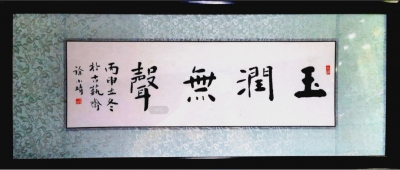 玉潤無聲
丙申之冬
於古藝齋